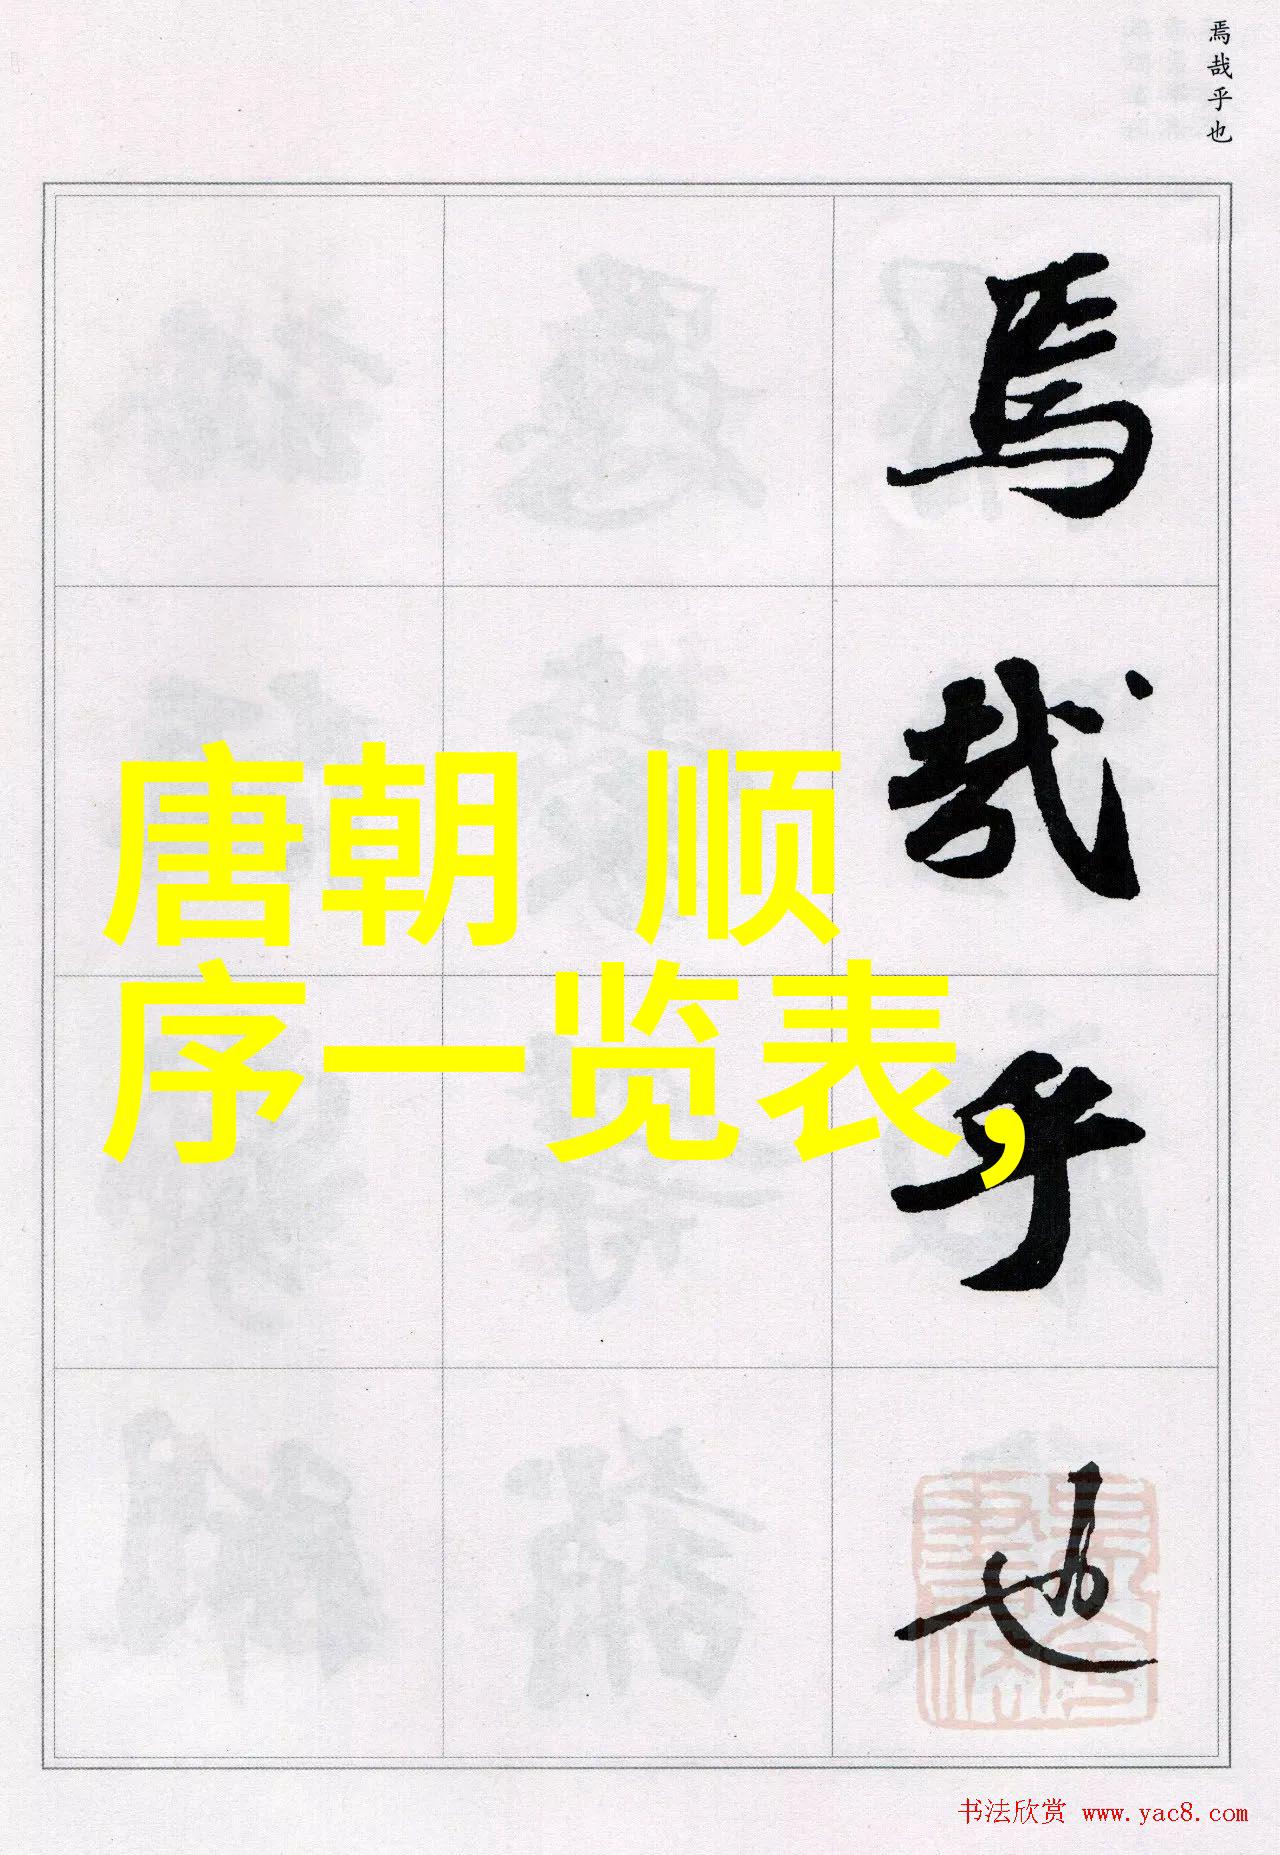 焉哉乎也
焉
哉
乎
也
唐朝 顺
序一览表,
书法欣赏 www.yac8.com